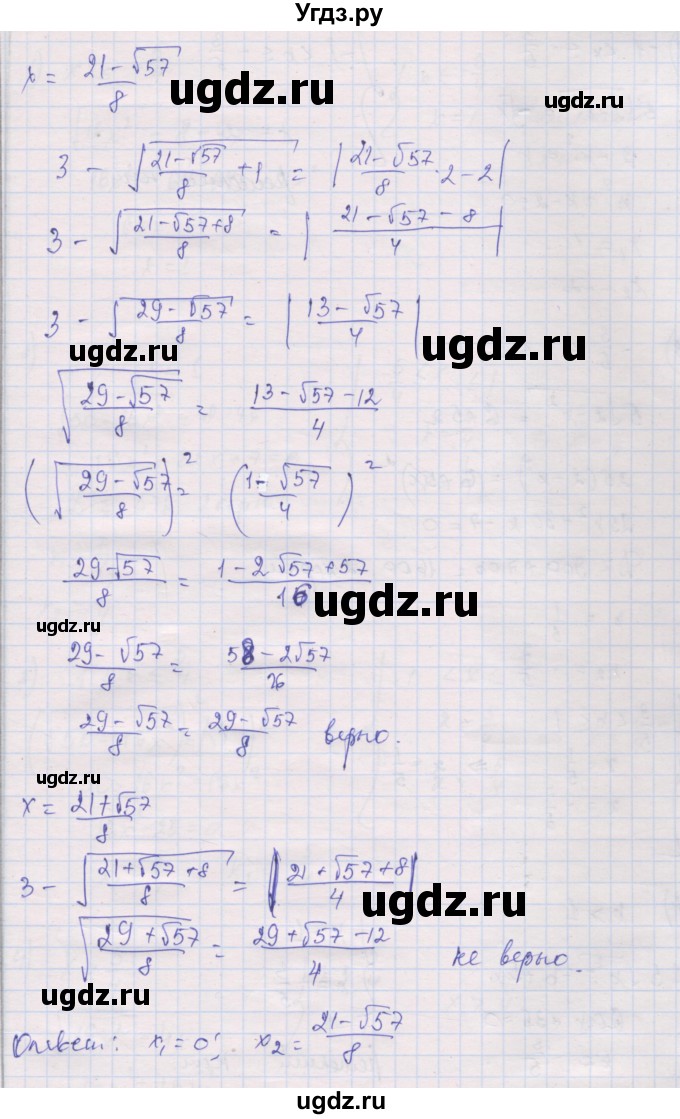 Угдз.ру
x = (21 - √57)/8
ugdz.ru
ugdz.ru
3 - √((21 - √57)/8 + 1) = |(21 - √57)/8 · 2 - 2|
3 - √((21 - √57 + 8)/8) = |(21 - √57 - 8)/4|
3 - √((29 - √57)/8) = |(13 - √57)/4|
ugdz.ru
ugdz.ru
√((29 - √57)/8) = (13 - √57 - 12)/4
(√((29 - √57)/8))² = ((1 - √57)/4)²
(29 - √57)/8 = (1 - 2√57 + 57)/16
ugdz.ru
ugdz.ru
(29 - √57)/8 = (58 - 2√57)/16
(29 - √57)/8 = (29 - √57)/8 верно.
ugdz.ru
x = (21 + √57)/8
3 - √((21 + √57 + 8)/8) = |(21 + √57 + 8)/4|
ugdz.ru
√((29 + √57)/8) = (29 + √57 - 12)/4 не верно.
ugdz.ru
Ответ: x₁ = 0; x₂ = (21 - √57)/8
ugdz.ru
ugdz.ru